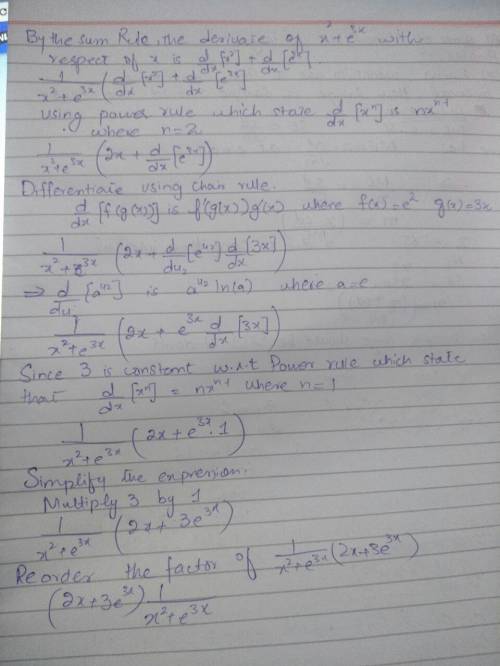 By the sum Rule, the derivate of x²+e^3x with
respect of x is d/dx [x²] + d/dx [e^3x]
1/(x²+e^3x) (d/dx [x²] + d/dx [e^3x]
using power rule which state d/dx [xⁿ] is nx^n-1
where n=2
1/(x²+e^3x) (2x + d/dx [e^3x])
Differentiate using chan rule.
d/dx [f(g(x))] is f'(g(x))g'(x) where f(x)=e² g(x)=3x
1/(x²+e^3x) (2x + d/du₂ [e^u₂] d/dx [3x])
⇒ d/du₂ [a^u₂] is a^u₂ ln(a) where a=e
1/(x²+e^3x) (2x + e^3x d/dx [3x])
Since 3 is constant w.r.t Power rule which state
that d/dx [xⁿ] = nx^n-1 where n=1
1/(x²+e^3x) (2x+e^3x.1)
Simplify the expression.
Multiply 3 by 1
1/(x²+e^3x) (2x + 3e^3x)
Reorder the factor of 1/(x²+e^3x) (2x+3e^3x)
(2x+3e^3x) 1/(x²+e^3x)